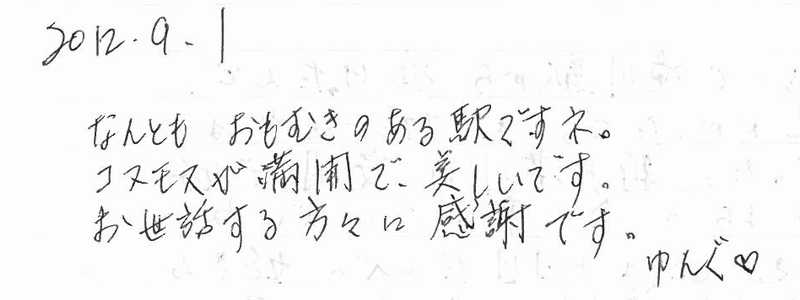 2012.9.1
なんとも おもむきのある駅ですネ。
コスモスが満開で、美しいです。
お世話する方々に感謝です。
ゆんぐ♡